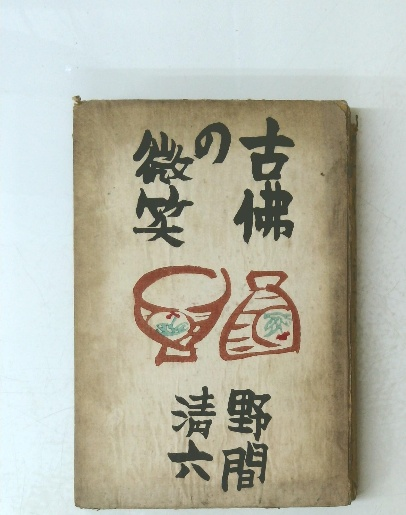 古佛
の
微笑
野間
清六